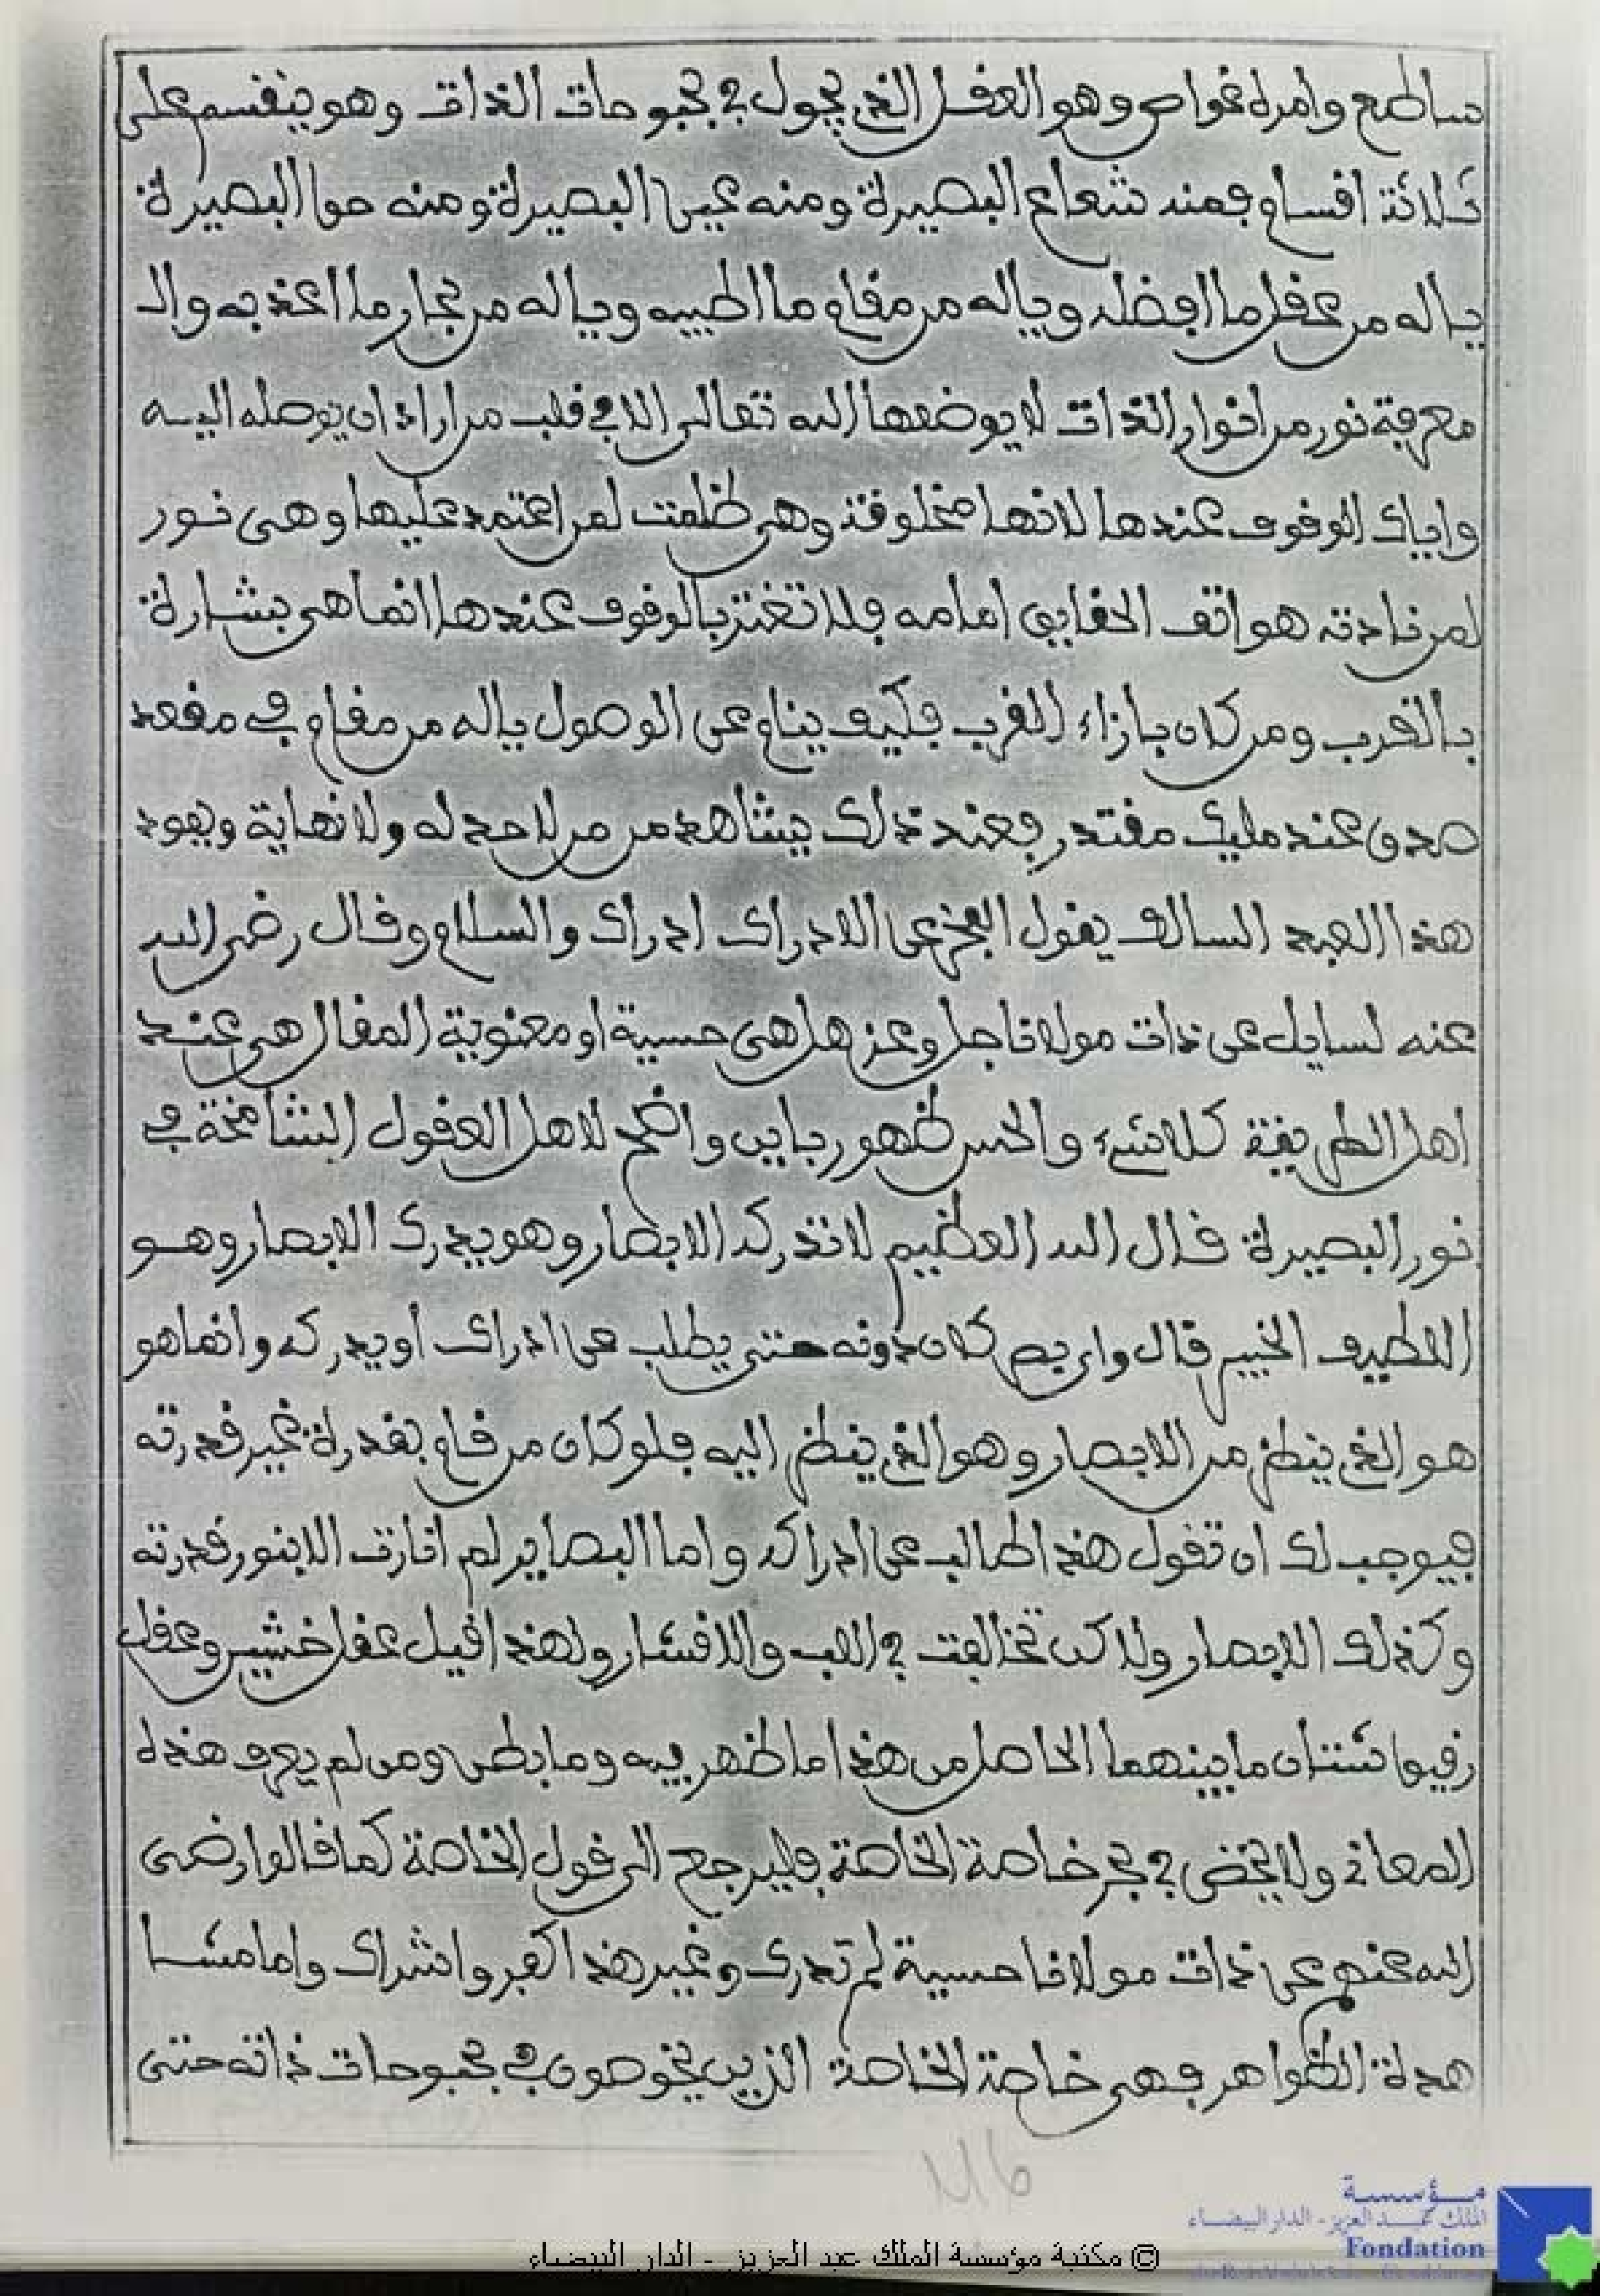 ساطع وامره غواص وهو العقل الذي يجول في بحبوحات الذات وهو ينقسم على
ثلاثة اقسام فمنه شعاع البصيرة ومنه عين البصيرة ومنه حق البصيرة
ياله من عقل ما افضله وياله من مقام ما اطيبه وياله من بحار ما اعذبه وال
معرفة نور من انوار الذات لا يوضعها الله تعالى الا في قلب من اراد ان يوصله اليه
واياك الوقوف عندها لانها مخلوقة وهي ظلمت لمن اعتمد عليها وهي نور
لمن نادته هواتف الحقايق امامه فلا تغتر بالوقوف عندها انما هي بشارة
بالقرب ومن كان بازاء القرب فكيف ينام عن الوصول ياله من مقام في مقعد
صدق عند مليك مقتدر فعند ذلك يشاهد من من لا حد له ولا نهاية ويعود
هذا العبد السالك يقول العجز عن الادراك ادراك والسلام وقال رضي الله
عنه لسايل عن ذات مولانا جل وعز هل هي حسية او معنوية المقال هي عند
اهل الطريقة كلا شيء والحس ظهور باين واضح لاهل العقول الشامخة في
نور البصيرة قال الله العظيم لا تدركه الابصار وهو يدرك الابصار وهو
اللطيف الخبير قال واي بصر كان دونه حتى يطلب عن ادراك أو يدركه وانما هو
هو الذي ينظر من الابصار وهو الذي ينظر اليه فلو كان من قام بقدرة غير قدرته
فيوجب لك ان تقول هذا طالب عن ادراكه واما البصاير لم انارت الا بنور قدرته
وكذلك الابصار ولاكن تخالفت في اللب والاقشار ولهذا قيل عقل خشين وعقل
رقيق شتان ما بينهما الحاصل من هذا ما ظهر فيه وما بطن ومن لم يعرف هذه
المعاني ولا يخض في بحر خاصة الخاصة فليرجع الى قول الخاصة كما قالوا رضي
الله عنهم عن ذات مولانا حسية لم تدرك وغير هذا كفر واشراك واما مشا
هدة الظواهر فهي خاصة الخاصة الذين يخوضون في بحبوحات ذاته حتى
مؤسسة
الملك عبد العزيز - الدار البيضاء
Fondation
© مكتبة مؤسسة الملك عبد العزيز - الدار البيضاء